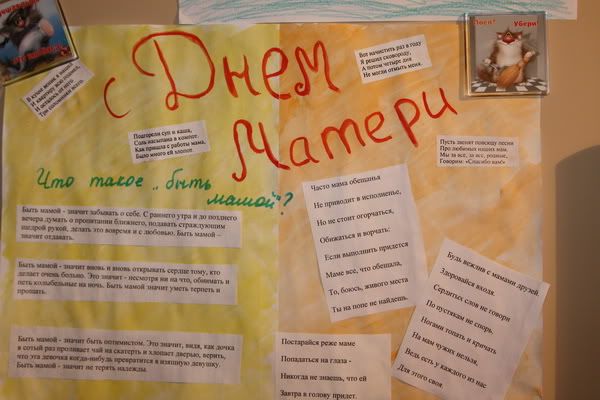 Поел? Убери!
С Днем
Матери
В кухне веник я нашёл
И квартиру всю подмёл,
И осталось от него
Три соломинки всего.
Вот начистить раз в году
Я решил сковороду,
А потом четыре дня
Не могли отмыть меня.
Подгорели суп и каша,
Соль насыпана в компот.
Как пришла с работы мама,
Было много ей хлопот.
Пусть звенят повсюду песни
Про любимых наших мам.
Мы за все, за все, родные,
Говорим: «Спасибо вам!»
Что такое „быть
мамой"?
Быть мамой - значит забывать о себе. С раннего утра и до позднего
вечера думать о пропитании ближнего, подавать страждующим
щедрой рукой, делать это вовремя и с любовью. Быть мамой –
значит отдавать.
Быть мамой - значит вновь и вновь открывать сердце тому, кто
делает очень больно. Это значит - несмотря ни на что, обнимать и
петь колыбельные на ночь. Быть мамой значит уметь терпеть и
прощать.
Быть мамой - значит быть оптимистом. Это значит, видя, как дочка
в сотый раз проливает чай на скатерть и хлопает дверью, верить,
что эта девочка когда-нибудь превратится в изящную девушку.
Быть мамой - значит не терять надежды.
Часто мама обещанья
Не приводит в исполненье,
Но не стоит огорчаться,
Обижаться и ворчать:
Если выполнить придется
Маме все, что обещала,
То, боюсь, живого места
Ты на попе не найдешь.
Будь вежлив с мамами друзей
Здоровайся входя.
Сердитых слов не говори
По пустякам не спорь,
Ногами топать и кричать
На мам чужих нельзя,
Ведь есть у каждого из нас
Для этого своя.
Постарайся реже маме
Попадаться на глаза -
Никогда не знаешь, что ей
Завтра в голову придет.